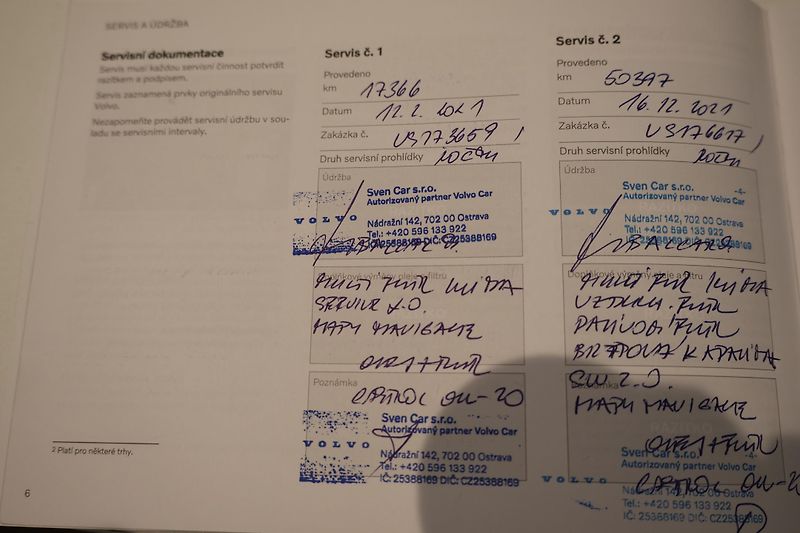 SERVIS A ÚDRŽBA
Servisní dokumentace
Servis musí každou servisní činnost potvrdit
razítkem a podpisem.
Servis zaznamená prvky originálního servisu
Volvo.
Nezapomeňte provádět servisní údržbu v sou-
ladu se servisními intervaly.
2 Platí pro některé trhy.
6
Servis č. 1
Provedeno
km 17366
Datum 12.2.2021
Zakázka č. VS173659
Druh servisní prohlídky ROČNÍ
Údržba
Sven Car s.r.o.
Autorizovaný partner Volvo Car
VOLVO
Nádražní 142, 702 00 Ostrava
Tel.: +420 596 133 922
IČ: 25388169 DIČ: CZ25388169
Doplňkové výměny oleje a filtrů
MULTI FILTR
SERVICE
MAPY NAVIGACE
OLEJ + FILTR
Poznámka
CASTROL 0W-20
Sven Car s.r.o.
Autorizovaný partner Volvo Car
VOLVO
Nádražní 142, 702 00 Ostrava
Tel.: +420 596 133 922
IČ: 25388169 DIČ: CZ25388169
Servis č. 2
Provedeno
km 50397
Datum 16.12.2021
Zakázka č. VS176617
Druh servisní prohlídky ROČNÍ
Údržba
Sven Car s.r.o. -4-
Autorizovaný partner Volvo Car
VOLVO
Nádražní 142, 702 00 Ostrava
Tel.: +420 596 133 922
IČ: 25388169 DIČ: CZ25388169
Doplňkové výměny oleje a filtrů
MULTI FILTR
VZDUCH. FILTR
PALIVOVÝ FILTR
BRZDOVÁ KAPALINA
Poznámka
MAPY NAVIGACE
OLEJ + FILTR
Sven Car s.r.o. -4-
Autorizovaný partner Volvo Car
VOLVO
CASTROL 0W-20
Nádražní 142, 702 00 Ostrava
Tel.: +420 596 133 922
IČ: 25388169 DIČ: CZ25388169